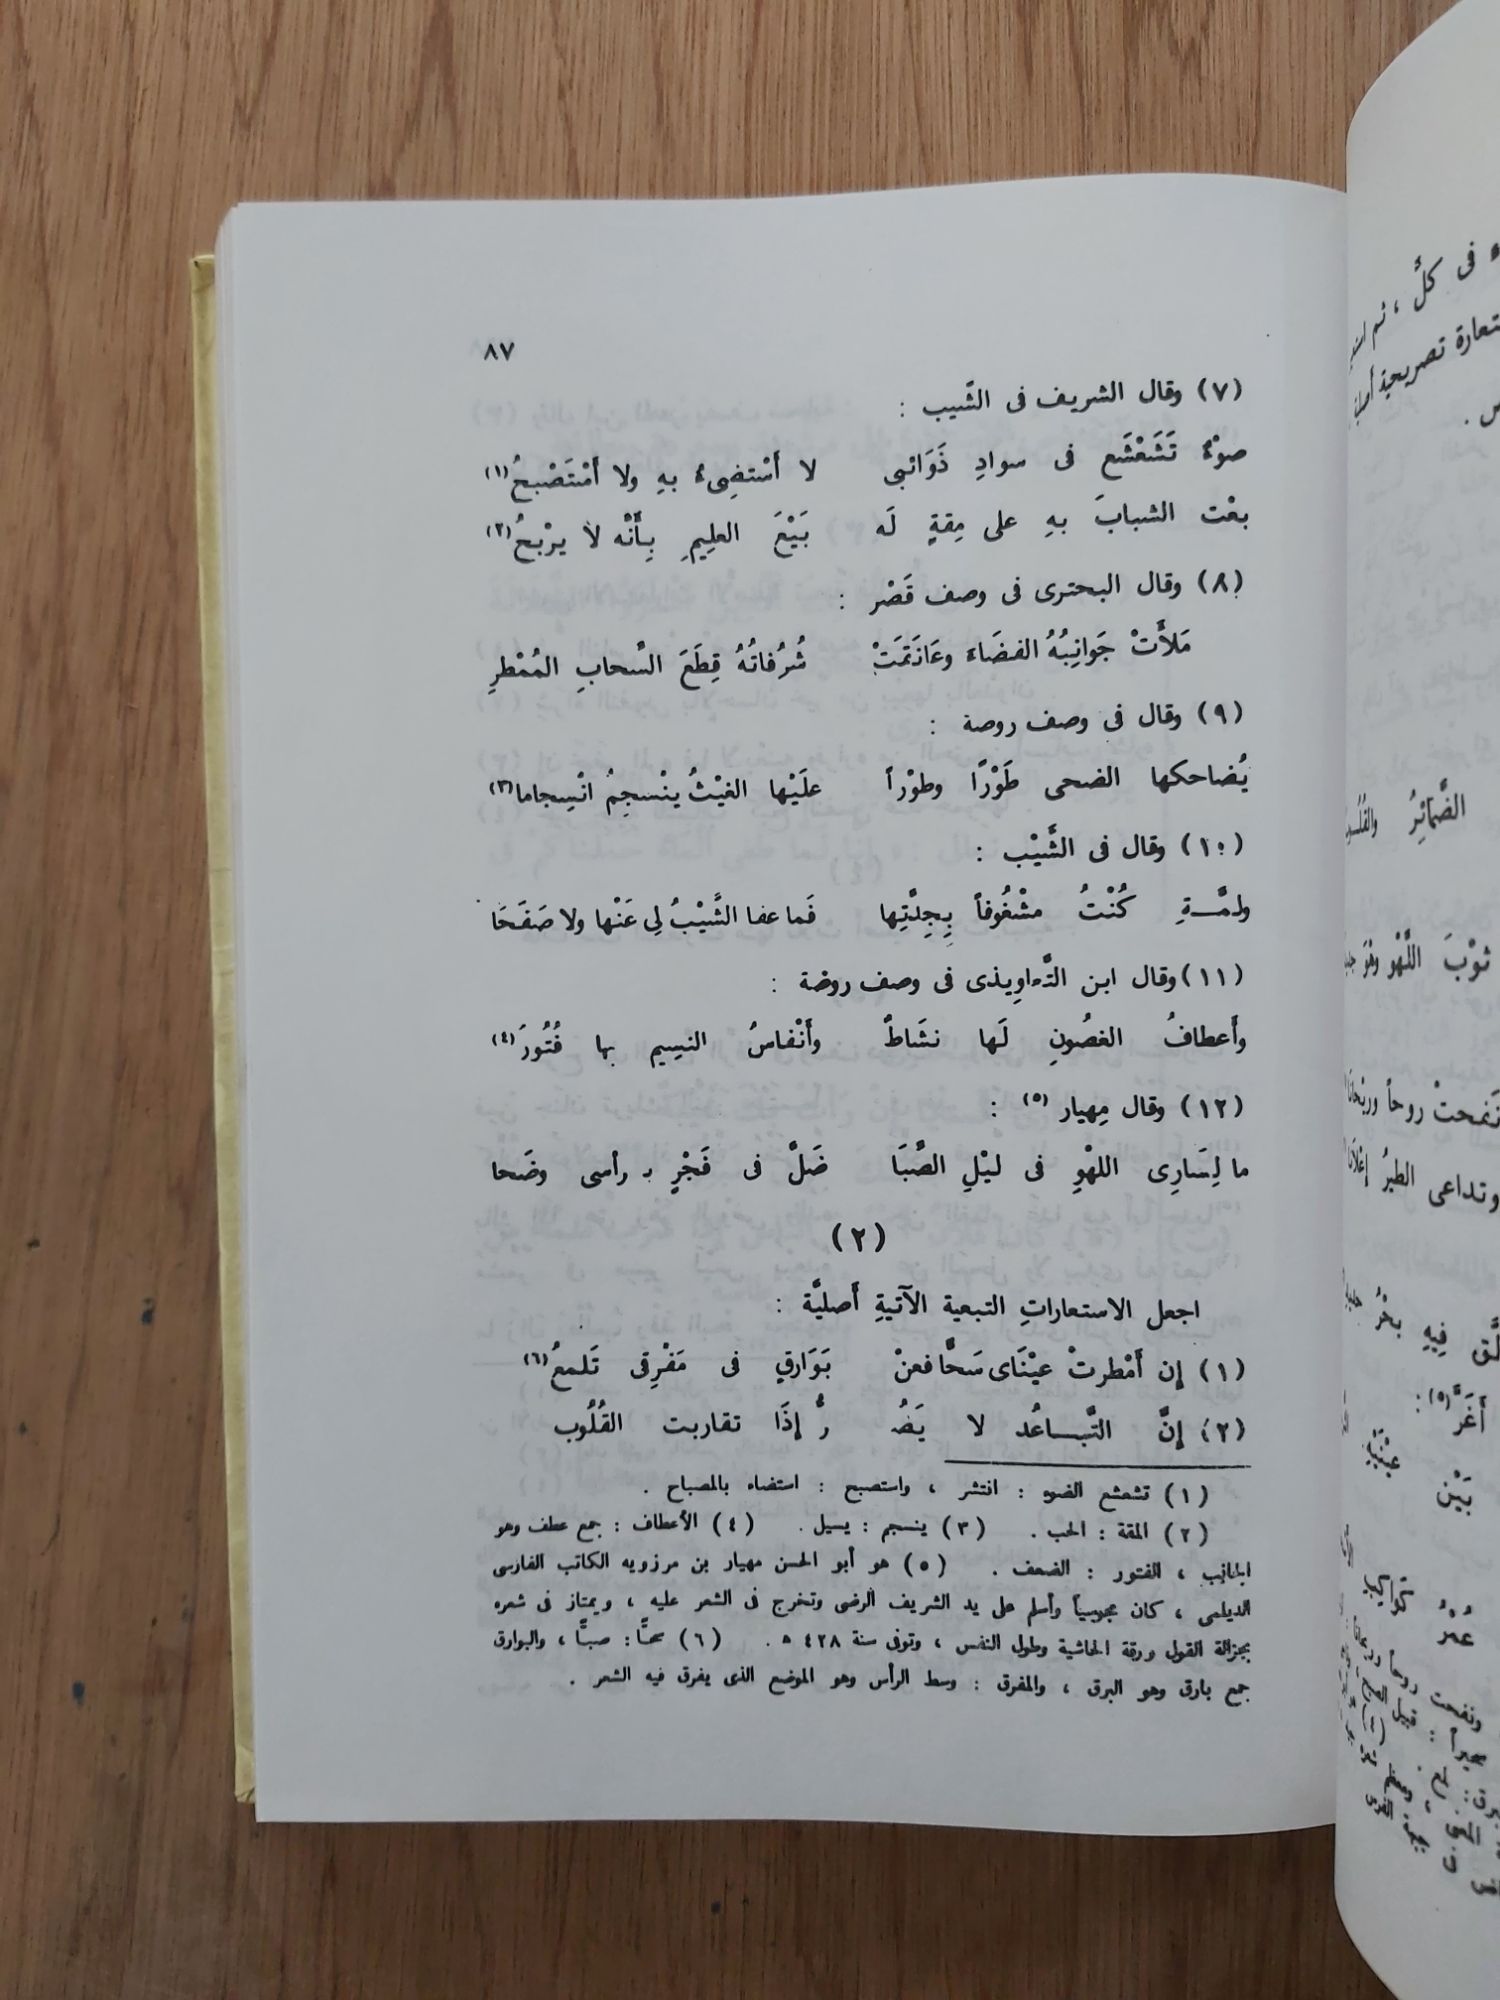 ٨٧
(٧) وقال الشريف فى الشَّيب :
ضوْءٌ تَشَعْشَع فى سوادِ ذَوَائبى لا أَسْتضِىءُ بهِ ولا أَسْتَصْبحُ(١)
بعْت الشبابَ بهِ على مِقةٍ لَه بَيْعَ العلِيمِ بِأَنَّه لا يرْبحُ(٢)
(٨) وقال البحترى فى وصف قَصْر :
مَلأَتْ جَوانِبُهُ الفضَاءَ وعَانَقَتْ شُرُفاتُهُ قِطَعَ السَّحابِ المُمْطرِ
(٩) وقال فى وصف روضة :
يُضاحكها الضحى طَوْرًا وطوْراً علَيْها الغيْثُ ينْسجِمُ انْسِجاما(٣)
(١٠) وقال فى الشَّيْب :
ولمَّـةٍ كُنْتُ مشْغُوفاً بِجِدَّتِها فَما عفا الشَّيْبُ لِى عَنْها ولا صَفَحَا
(١١) وقال ابن التَّعاوِيذى فى وصف روضة :
وأَعطافُ الغصُونِ لَها نشَاطٌ وأَنْفاسُ النسِيم بها فُتُورُ(٤)
(١٢) وقال مِهيار (٥) :
ما لِسَارِى اللهْوِ فى ليْلِ الصِّبَا ضَلَّ فى فَجْرٍ برأسى وضَحا
(٢)
اجعل الاستعاراتِ التبعية الآتيةِ أَصليَّة :
(١) إن أَمْطرتْ عيْنَاى سَحًّا فعنْ بَوَارقٍ فى مَفْرِقى تَلمعُ(٦)
(٢) إنَّ التَّبــاعُد لا يَضُـ رُّ إذَا تقاربت القُلُوب
(١) تشعشع الضوء : انتشر ، واستصبح : استضاء بالمصباح .
(٢) المقة : الحب . (٣) ينسجم : يسيل . (٤) الأعطاف : جمع عطف وهو
الجانب ، الفتور : الضعف . (٥) هو أبو الحسن مهيار بن مرزويه الكاتب الفارسى
الديلمى ، كان مجوسياً وأسلم على يد الشريف الرضى وتخرج فى الشعر عليه ، ويمتاز فى شعره
بجزالة القول ورقة الحاشية وطول النفس ، وتوفى سنة ٤٢٨ ه . (٦) سحًّا : صبًّا ، والبوارق
جمع بارق وهو البرق ، والمفرق : وسط الرأس وهو الموضع الذى يفرق فيه الشعر .
فى كلٍّ ، ثم
تصريحية
الضَّمَائِرُ
ثوْبَ اللَّهْو وهْوَ
نَفحتْ روحاً وريْحانَا
وتداعى الطيرُ إعْلانَا
فِيهِ بحْرُ
أَغَرَّ(٥) :
بَيْن